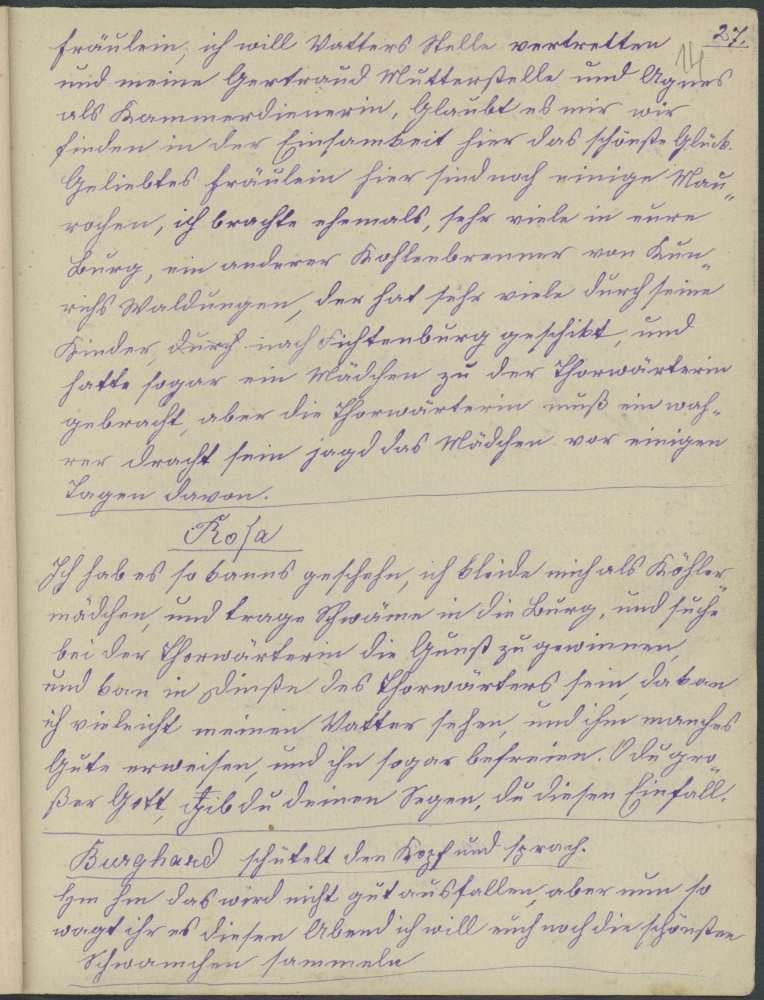 27.
14
fräulein, ich will Vatters Stelle vertretten
und meine Gertraud Mutterstelle und Agnes
als Kammerdienerin, Glaubt es mir wir
finden in der Einsamkeit hier das schönste Glück.
Geliebtes fräulein hier sind noch einige Mau„
rochen, ich brachte ehemals, sehr viele in eure
Burg, ein anderer Kohlenbrenner von Kun„
richs Waldungen, der hat sehr viele durch seine
Kinder, durch nach Fichtenburg geschikt, und
hatte sogar ein Mädchen zu der Thorwärterin
gebracht, aber die Thorwärterin muß ein wah„
rer Dracht sein jagd das Mädchen vor einigen
Tagen davon.
Rosa
Ich hab es so kanns geschehn, ich kleide mich als Köhler„
mädchen, und trage Schwäme in die Burg, und suche
bei der Thorwärterin die Gunst zu gewinnen,
und kan in Dinste des Thorwärters sein, da kan
ich vieleicht meinen Vatter sehen, und ihm manches
Gute erweisen, und ihn sogar befreien. O du gro„
ßer Gott, gib du deinen Segen, du diesen Einfall.
Burghard schütelt den Kopf und sprach.
Hm hm das wird nicht gut ausfallen, aber nun so
wagt ihr es diesen Abend ich will euch noch die schönsten
Schwamchen sammeln